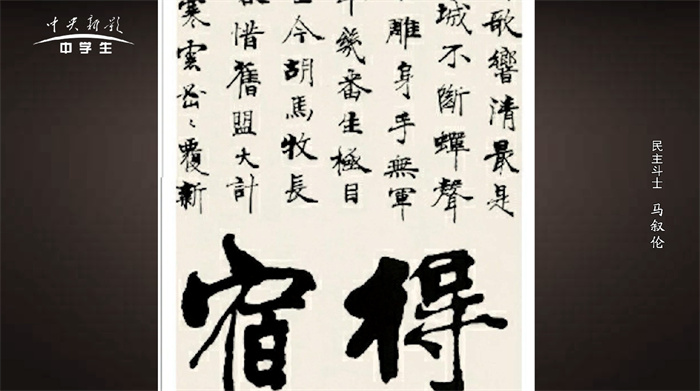 中央新影
中学生
歌響清最是
城不斷蟬聲
雕身手無軍
幾番生極目
今胡馬牧長
惜舊盟大計
寒雲覆新
得宿
民主斗士 马叙伦